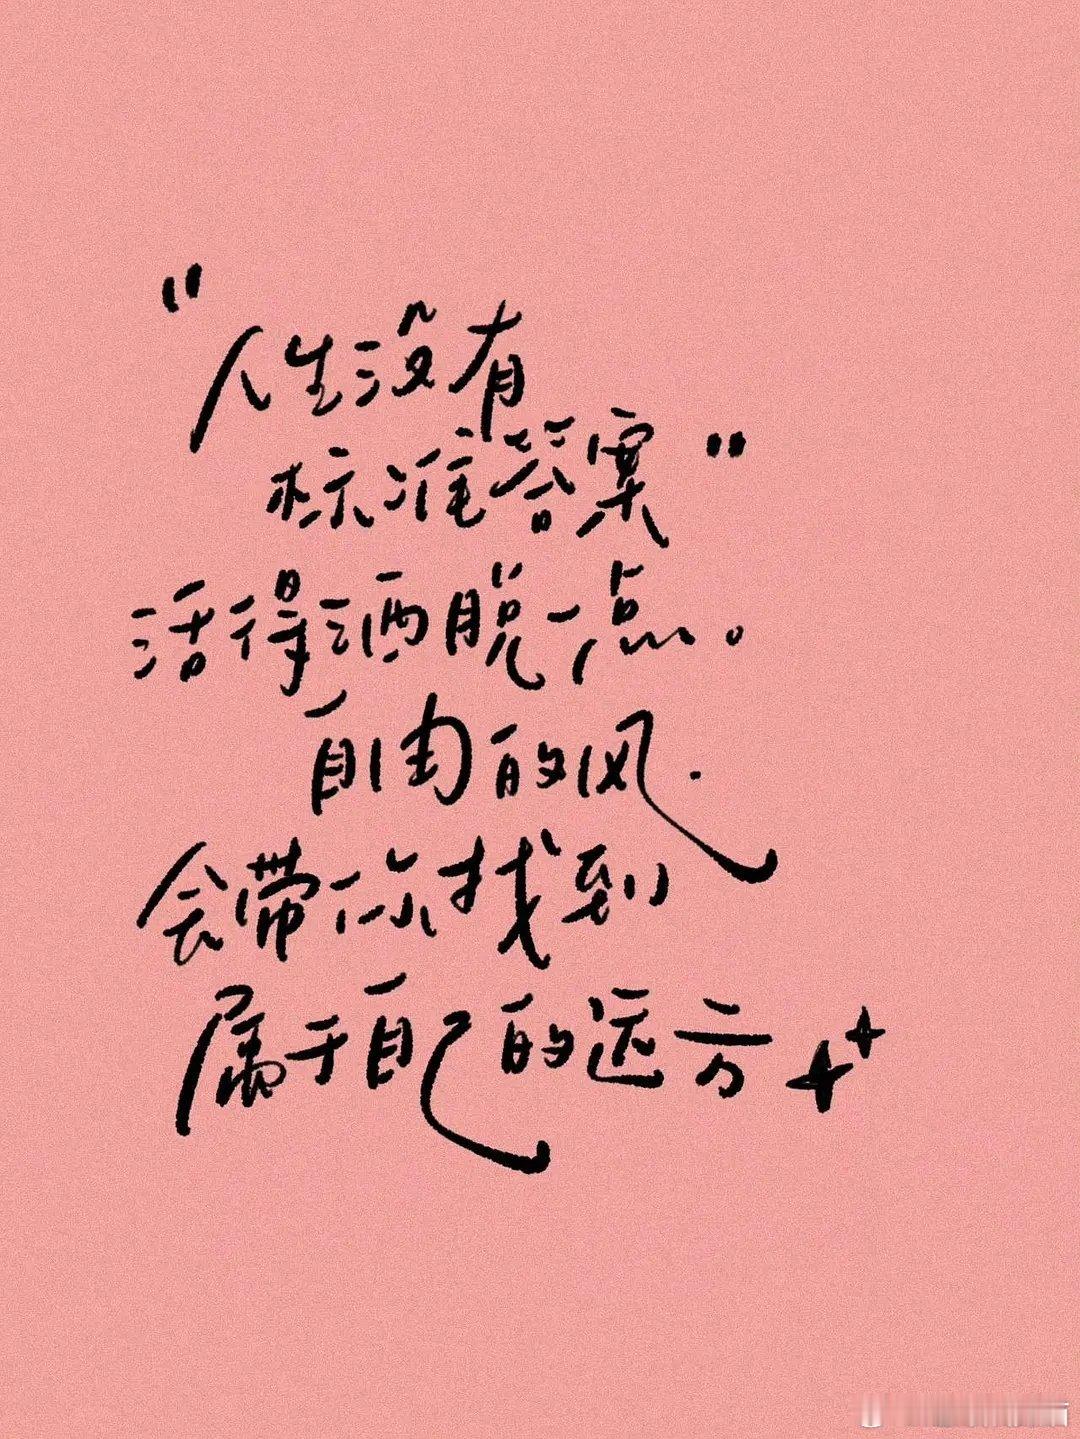 "人生没有
标准答案"
活得洒脱一点。
自由的风.
会带你找到
属于自己的远方